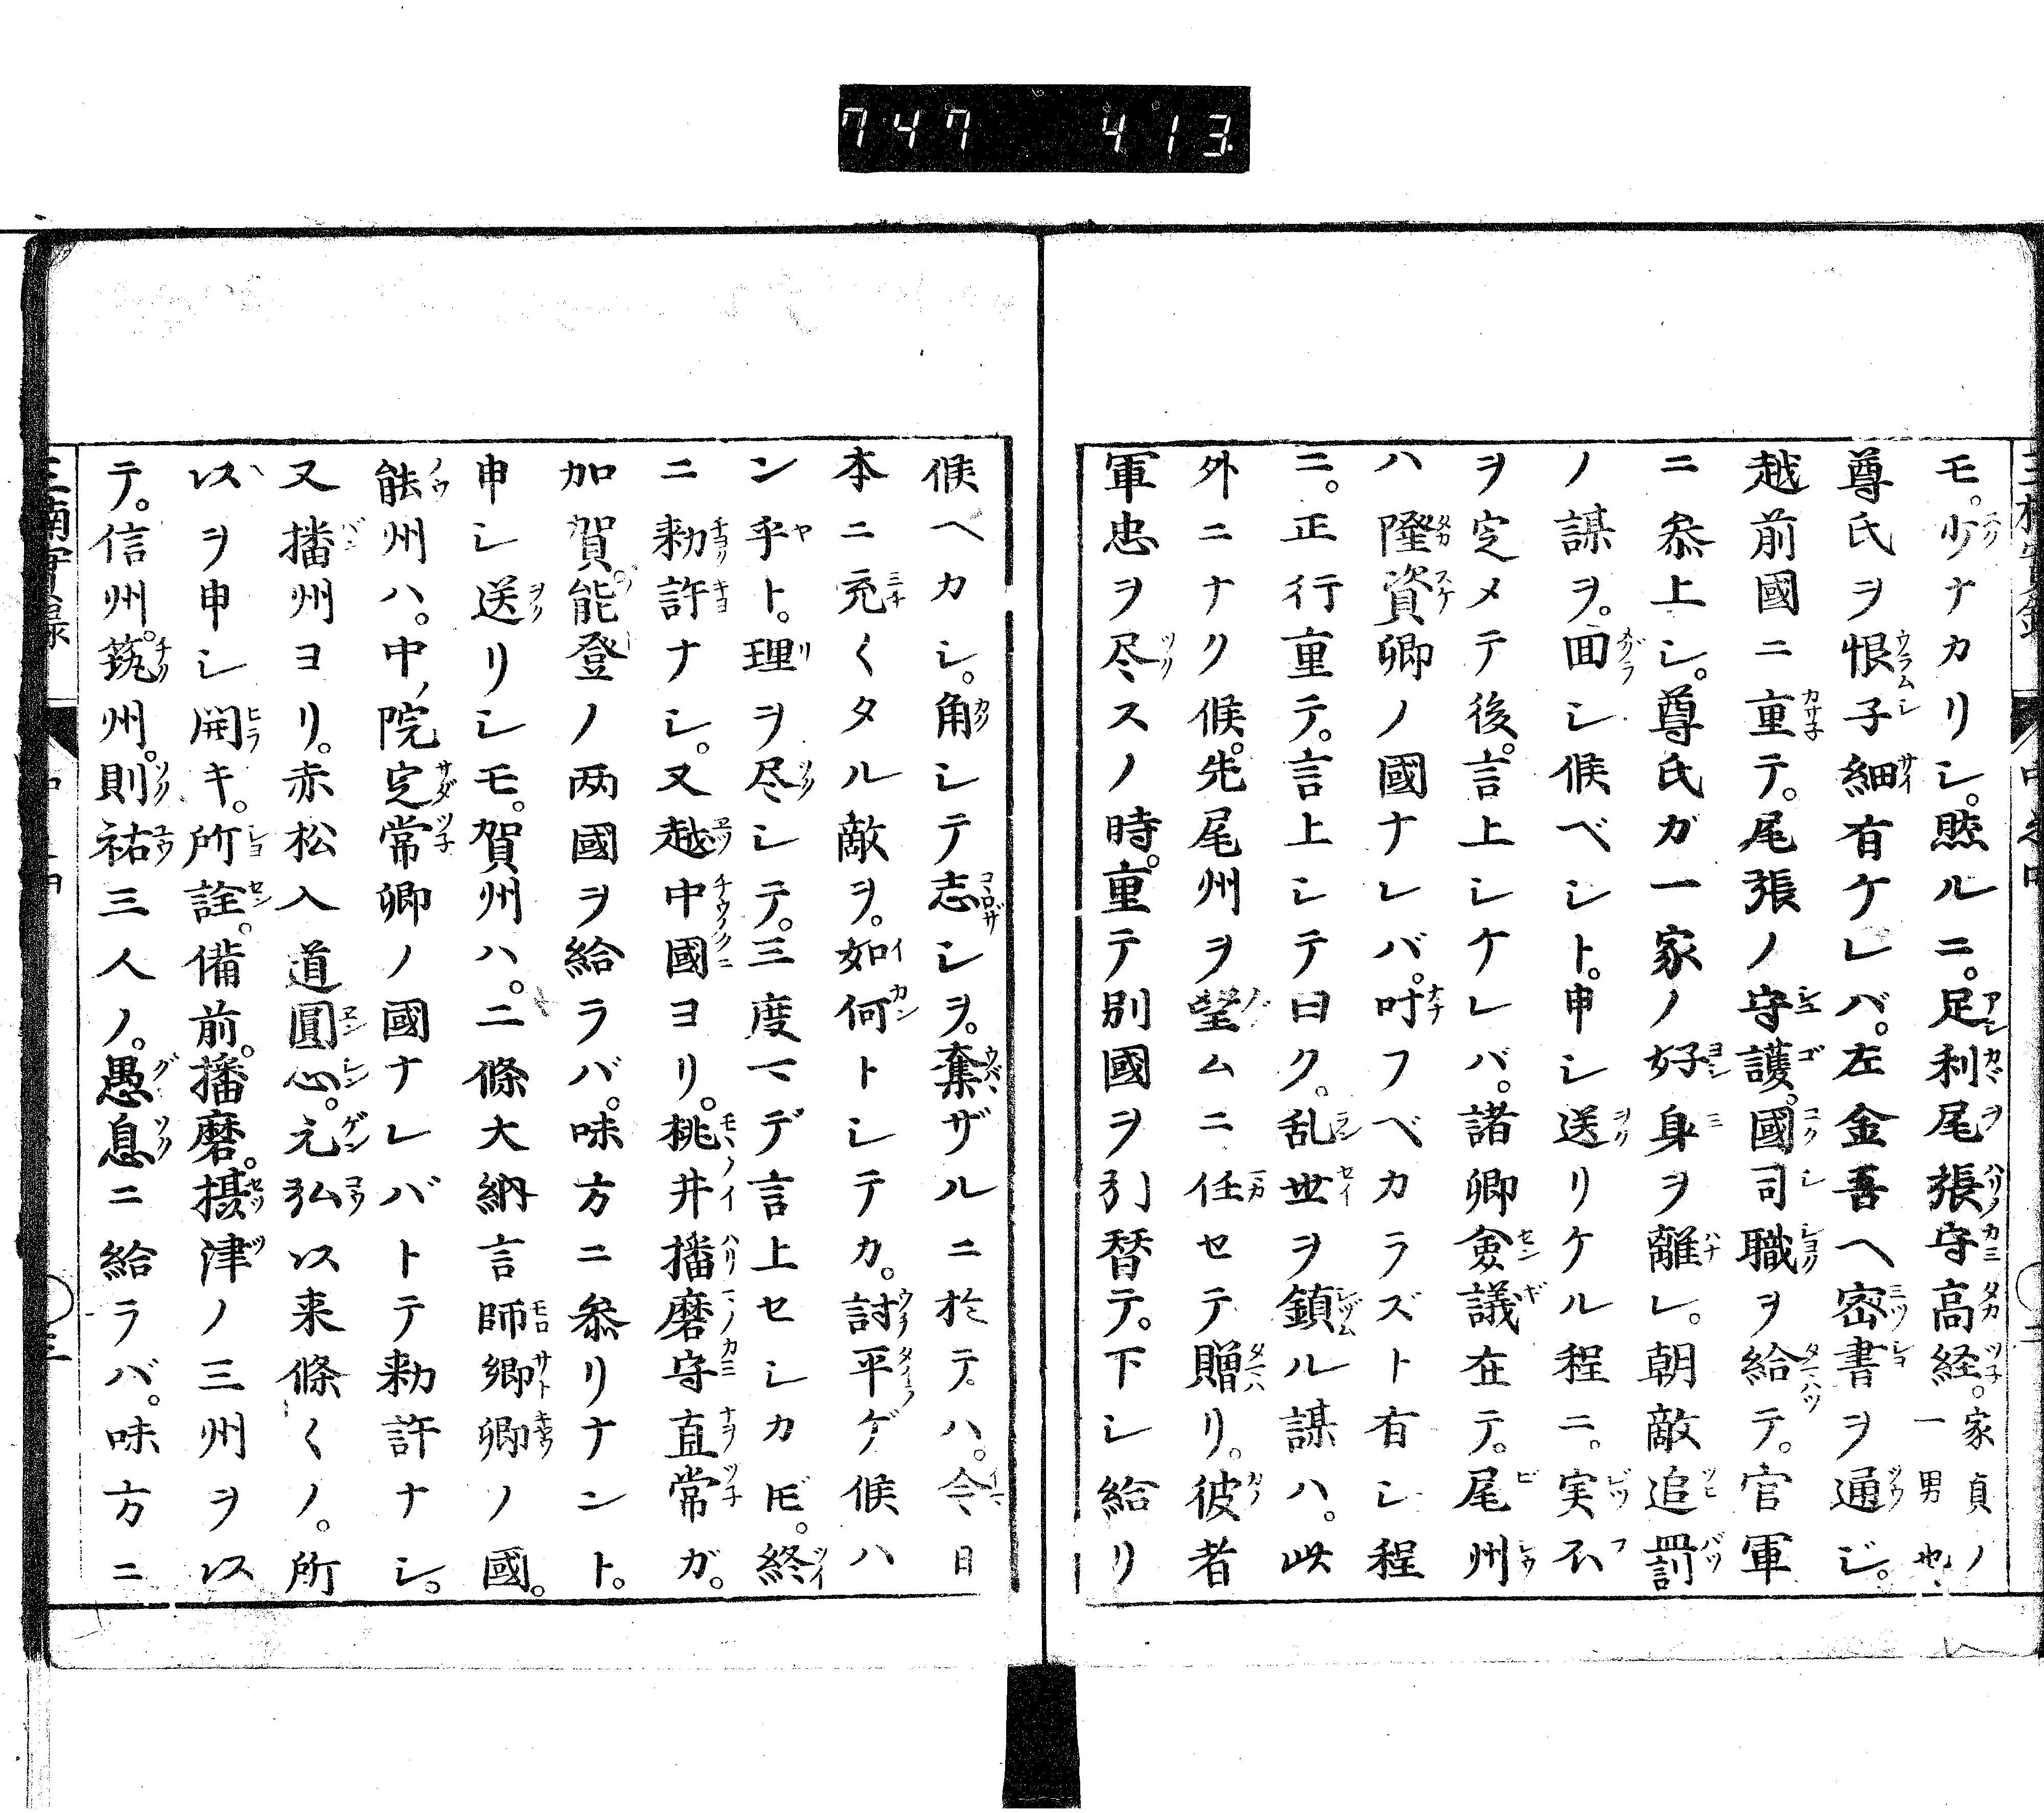 747 413
モ。少ナカリシ。然ルニ。足利尾張守高経。家貞ノ一男也、
尊氏ヲ恨子細有ケレバ。左金吾ヘ密書ヲ通ジ。
越前國ニ重テ。尾張ノ守護。國司職ヲ給テ。官軍
ニ参上シ。尊氏ガ一家ノ好身ヲ離レ。朝敵追罸
ノ謀ヲ。囬シ候ベシト。申シ送リケル程ニ。実不
ヲ定メテ後。言上シケレバ。諸卿僉議在テ。尾州
ハ隆資卿ノ國ナレバ。叶フベカラズト有シ程
ニ。正行重テ。言上シテ曰ク。乱世ヲ鎮ル謀ハ。此
外ニナク候。先尾州ヲ望ムニ任セテ贈リ。彼者
軍忠ヲ尽スノ時。重テ別國ヲ引替テ。下シ給リ
候ヘカシ。角シテ志シヲ。奪ザルニ於テハ。今日
本ニ充くタル敵ヲ。如何トシテカ。討平ゲ候ハ
ン乎ト。理ヲ尽シテ。三度マデ言上セシカ𪜈。終
ニ勅許ナシ。又越中國ヨリ。桃井播磨守直常ガ。
加賀。能登ノ两國ヲ給ラバ。味方ニ参リナント。
申シ送リシモ。賀州ハ。二條大納言師郷卿ノ國。
能州ハ。中ノ院定常卿ノ國ナレバトテ勅許ナシ。
又播州ヨリ。赤松入道圓心。元弘以来條くノ。所
以ヲ申シ開キ。所詮。備前。播磨。摂津ノ三州ヲ以
テ。信州。筑州。則祐三人ノ。愚息ニ給ラバ。味方ニ